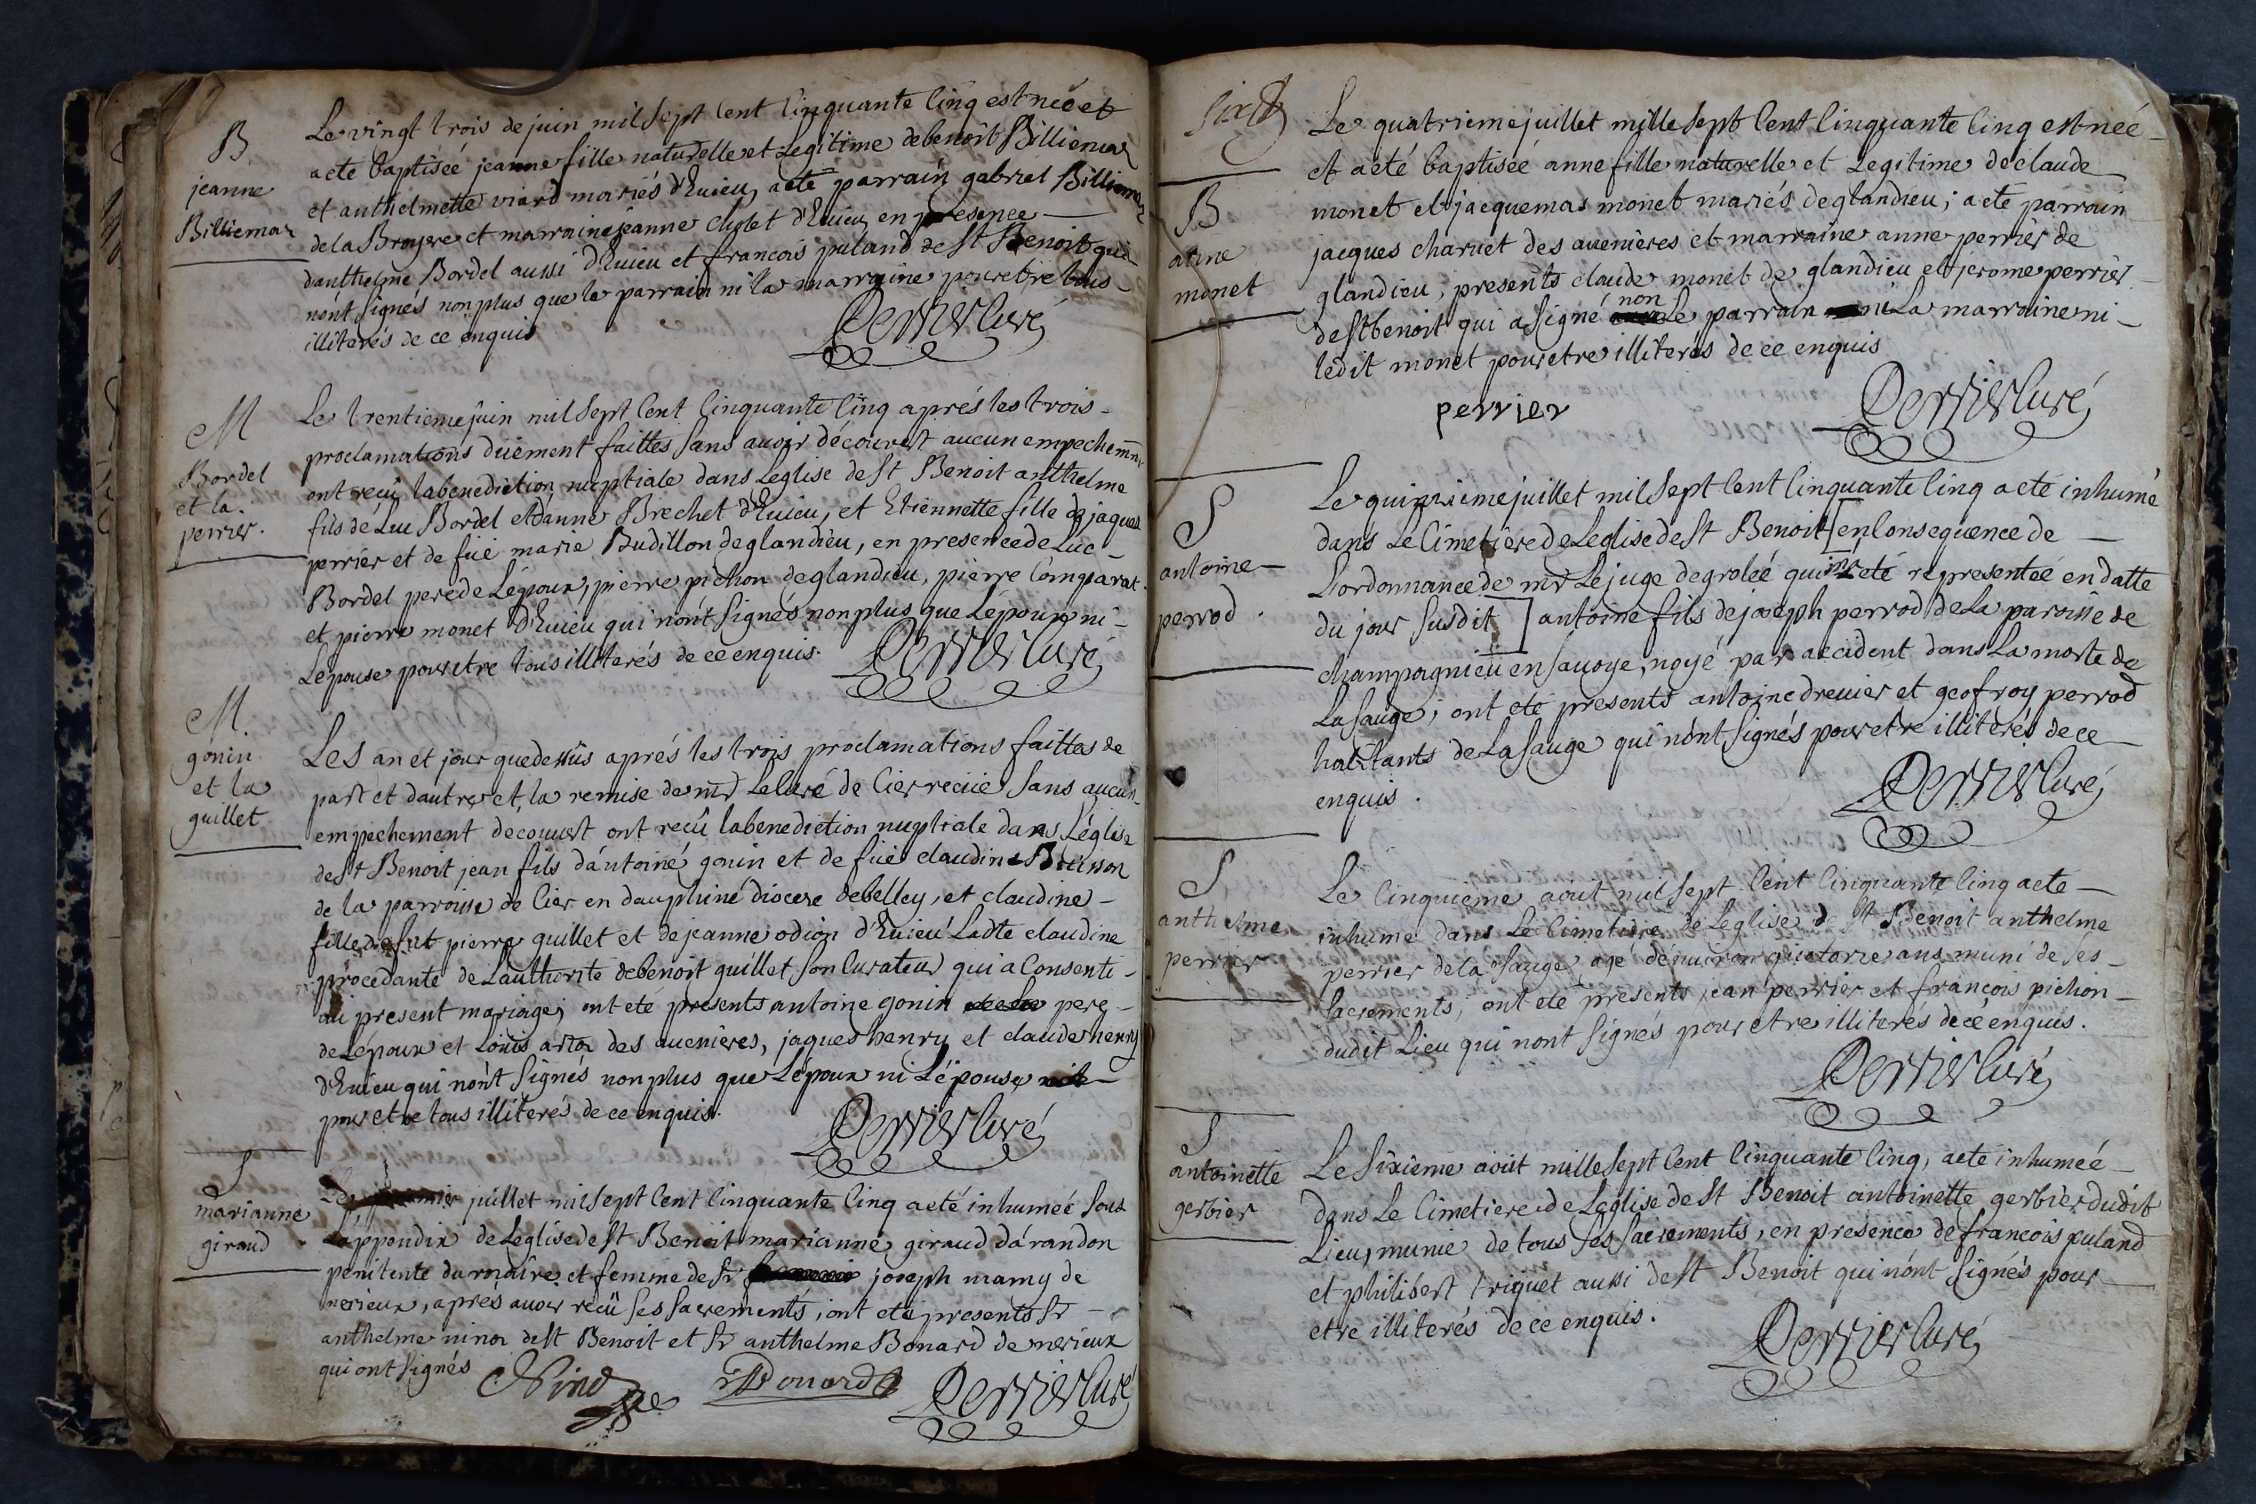 B
jeanne
Billiemaz
Le vingt trois de juin mil sept Cent Cinquante Cinq est neé et
a eté baptiseé jeanne fille naturelle et Legitime de benoit Billiemaz
et anthelmette viard mariés d'Evieu, a eté parrain gabriel Billiemaz
de la Broyere et marraine jeanne cholet d'Evieu en presence
danthelme Bordel aussi d'Evieu et francois puland de St Benoit qui
n'ont signés non plus que le parrain ni la marraine pour etre tous
illiterés de ce enquis
Perrier Curé
M
Bordel
et la
perrier.
Le trentieme juin mil sept Cent Cinquante Cinq aprés les trois
proclamations duëment faittes sans avoir découvert aucun empechem̄n
ont reçû la benediction nuptiale dans Leglise de St Benoit anthelme
fils de Luc Bordel et d'anne Brechet d'Evieu, et Etiennette fille de jaques
perrier et de füe marie Budillon de glandieu, en presence de Luc
Bordel pere de Lépoux, pierre pichon de glandieu, pierre Comparat
et pierre monet d'Evieu qui n'ont signés non plus que Lépoux ni
Lépouse pour etre tous illiterés de ce enquis.
Perrier Curé
M.
gonin
et la
guillet
Les an et jour que dessus aprés les trois proclamations faittes de
part et dautre et la remise de mr Le Curé de Cier recüe sans aucun
empechement decouvert ont reçû la benediction nuptiale dans Léglise
de St Benoit jean fils d'antoine gonin et de füe claudine Buisson
de la parroisse de Cier en dauphiné diocese de belley, et claudine
fille de fut pierre guillet et de jeanne odion d'Evieu Ladte claudine
procedante de Lauthorité de benoit guillet son Curateur qui a Consenti
au present mariage; ont eté presents antoine gonin pere
de Lépoux et Louis artor des avenieres, jaques henry et claude henry
d'Evieu qui n'ont signés non plus que Lépoux ni Lépouse
pour etre tous illiterés de ce enquis.
Perrier Curé
S
marianne
giraud
Le premier juillet mil sept Cent Cinquante Cinq a eté inhumeé sous
Lappendix de Leglise de St Benoit marianne giraud d'arandon
penitente du rosaire et femme de Sr joseph mamy de
merieux, aprés avoir reçû ses sacrements, ont eté presents Sr
anthelme ninor de St Benoit et Sr anthelme Bonard de merieux
qui ont signés
Nino
Bonard
Perrier Curé
sixt
B
anne
monet
Le quatrieme juillet mille sept Cent Cinquante Cinq est neé
et a eté baptiseé anne fille naturelle et Legitime de claude
monet et jacquemas monet mariés de glandieu; a eté parrain
jacques charvet des avenieres et marraine anne perrier de
glandieu, presents claude monet de glandieu et jerome perrier
de St benoit qui a signé non Le parrain ni La marraine ni
ledit monet pour etre illiterés de ce enquis
perrier
Perrier Curé
S
antoine
perrod.
Le quinzieme juillet mil sept Cent Cinquante Cinq a eté inhumé
dans Le Cimetiere de Leglise de St Benoit [en Consequence de
Lordonnance de mr Le juge de groleé qui m'a eté representeé en datte
du jour susdit] antoine fils de joseph perrod de La paroisse de
champagnieu en savoye, noyé par accident dans La morte de
La sauge, ont eté presents antoine drevier et geofroy perrod
habitants de La sauge qui n'ont signés pour etre illiterés de ce
enquis.
Perrier Curé
S
anthelme
perrier
Le Cinquieme aout mil sept Cent Cinquante Cinq a eté
inhumé dans Le Cimetiere de Leglise de St Benoit anthelme
perrier de la sauge agé d'environ quatorze ans muni de ses
sacrements, ont eté presents jean perrier et francois pichon
dudit Lieu qui nont signés pour etre illiterés de ce enquis.
Perrier Curé
S
antoinette
gerbier
Le sixieme aout mille sept Cent Cinquante Cinq, a eté inhumeé
dans Le Cimetiere de Leglise de St Benoit antoinette gerbier dudit
Lieu, munie de tous ses sacrements, en presence de francois puland
et philibert triquet aussi de St Benoit qui n'ont signés pour
etre illiterés de ce enquis.
Perrier Curé